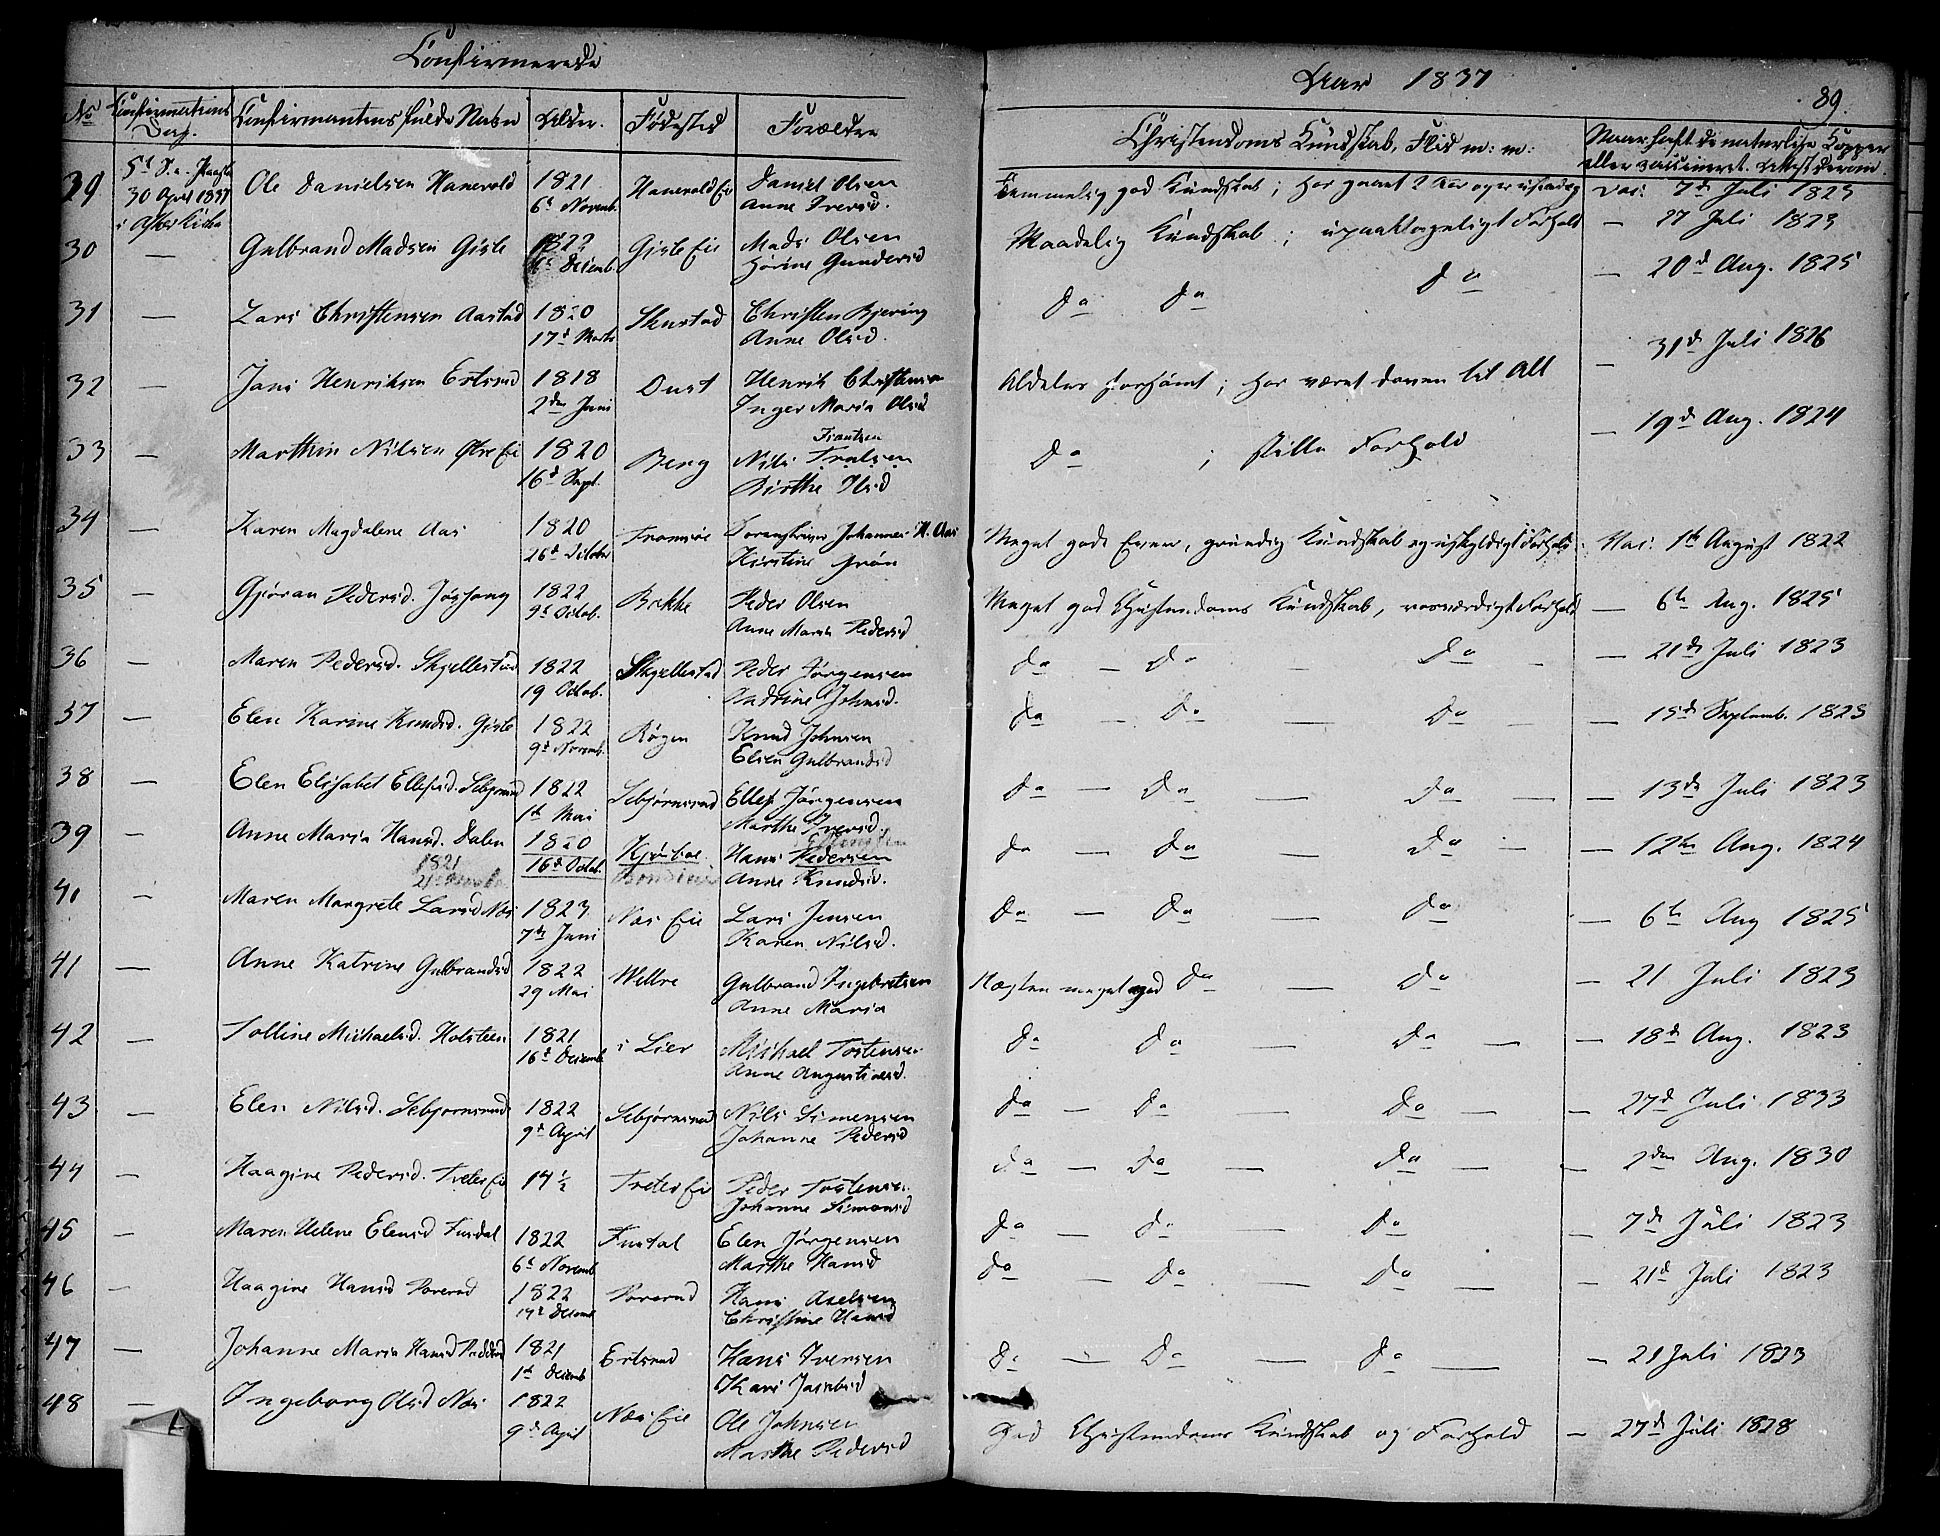 Confirmerede
Aar 1837
89.
No Confirmations Dag. Confirmantens fulde Navn Alder. Fødested Forældre
Christendoms Kundskab, Flid m: m: Naar havt de naturlige Kopper
eller vaccineret. Attest derom.
29 30 April 1837 i Asker Kirke Ole Danielsen Hanevold 1821 6te Novemb. Hanevold Eie Daniel Olsen
Anne Iversd.
Temmelig god Kundskab; har gaaet 2 Aar Vac: 7de Juli 1823
30 — Gulbrand Madsen Gisle 1822 Decemb. Gisle Eie Mads Olsen
Gundersd
Maadelig Kundskab; Forhold — 27 Juli 1823
31 — Lars Christensen Aastad 1820 17de Marts Skustad Christen Bjering
Anne Olsd.
do do do — 20de Aug. 1825
32 — Jens Henriksen Estsrud 1818 2den Juni Dust Henrik Christensen
Inger Maria Olsd
Aldeles forsømt; har været doven til Alt — 31de Juli 1826
33 — Marthin Nilsen Øvre Eie 1820 16de Sept. Berg Nils Frantsen
Birthe Olsd
do ; stille Forhold — 19de Aug. 1824
34 — Karen Magdalene Aas 1820 26de October Tromsøe Johannes H. Aas
Kirstine Grøn
Meget gode Evner, grundig Kundskab og Forhold Vac: 1ste August 1822
35 — Gjøran Pedersd. 1822 9de Octob. Bekke Peder Olsen
Anne Maria Pedersd
Meget god Christendoms Kundskab, Forhold — 6te Aug. 1825
36 — Maren Pedersd. Skjellestad 1822 19 Octob. Skjellestad Peder Jørgensen
Andrine Johnsd.
do — do — do — — 21de Juli 1823
37 — Elen Karine Knudsd. Gisle 1822 9de Novemb. Røgen Knud Johnsen
Elsen Gulbrandsd
do — do — do — — 15de Septemb. 1823
38 — Elen Elisabet Ellefsd. Sebjørnsrud 1822 1ste Mai Sebjørnsrud Ellef Jørgensen
Marthe Iversd.
do — do — do — — 13de Juli 1823
39 — Anne Maria Hansd. Dalen 1820 16de Octob. Kjørboe Hans Pedersen
1821
Anne Knudsd.
do — do — do — — 12te Aug. 1824
41 — Maren Margrete Larsd Næs 1823 7de Juni Næs Eie Lars Jensen
Karen Nilsd.
do — do — do — 6te Aug 1825
41 — Anne Katrine Gulbrandsd 1822 29 Mai Wellre Gulbrand Ingebretsen
Anne Maria
Næsten meget god do — do — 21 Juli 1823
42 — Tolline Michaelsd. Holsteen 1821 16de Decemb i Lier Michael Tostensen
Anne Augustinsd.
do do — do — — 18de Aug. 1823
43 — Elen Nilsd. Sebjørnsrud 1822 9de April Sebjørnsrud Nils Simensen
Johanne Pedersd
do — do — do — — 27de Juli 1833
44 — Haagine Pedersd. Tveter Eie 14 ½ Tveter Eie Peder Tostensen
Johanne Simensd
do — do — do — — 2den Aug. 1830
45 — Maren Helene Elensd Fusdal 1822 6te Novemb Fusdal Elen Jørgensen
Marthe Hansd
do — do — do — 7de Juli 1823
46 — Haagine Hansd Poverud 1822 14de Decemb Poverud Hans Axelsen
Christine Hansd
do — do — do — — 21de Juli 1823
47 — Johanne Maria Hansd 1821 1ste Decemb Estsrud Hans Iversen
Kari Jacobsd
do — do — do — — 21 Juli 1823
48 — Ingeborg Olsd Næs 1822 9de April Næs Eie Ole Johnsen
Marthe Pedersd
God Christendoms Kundskab og Forhold — 27de Juli 1828